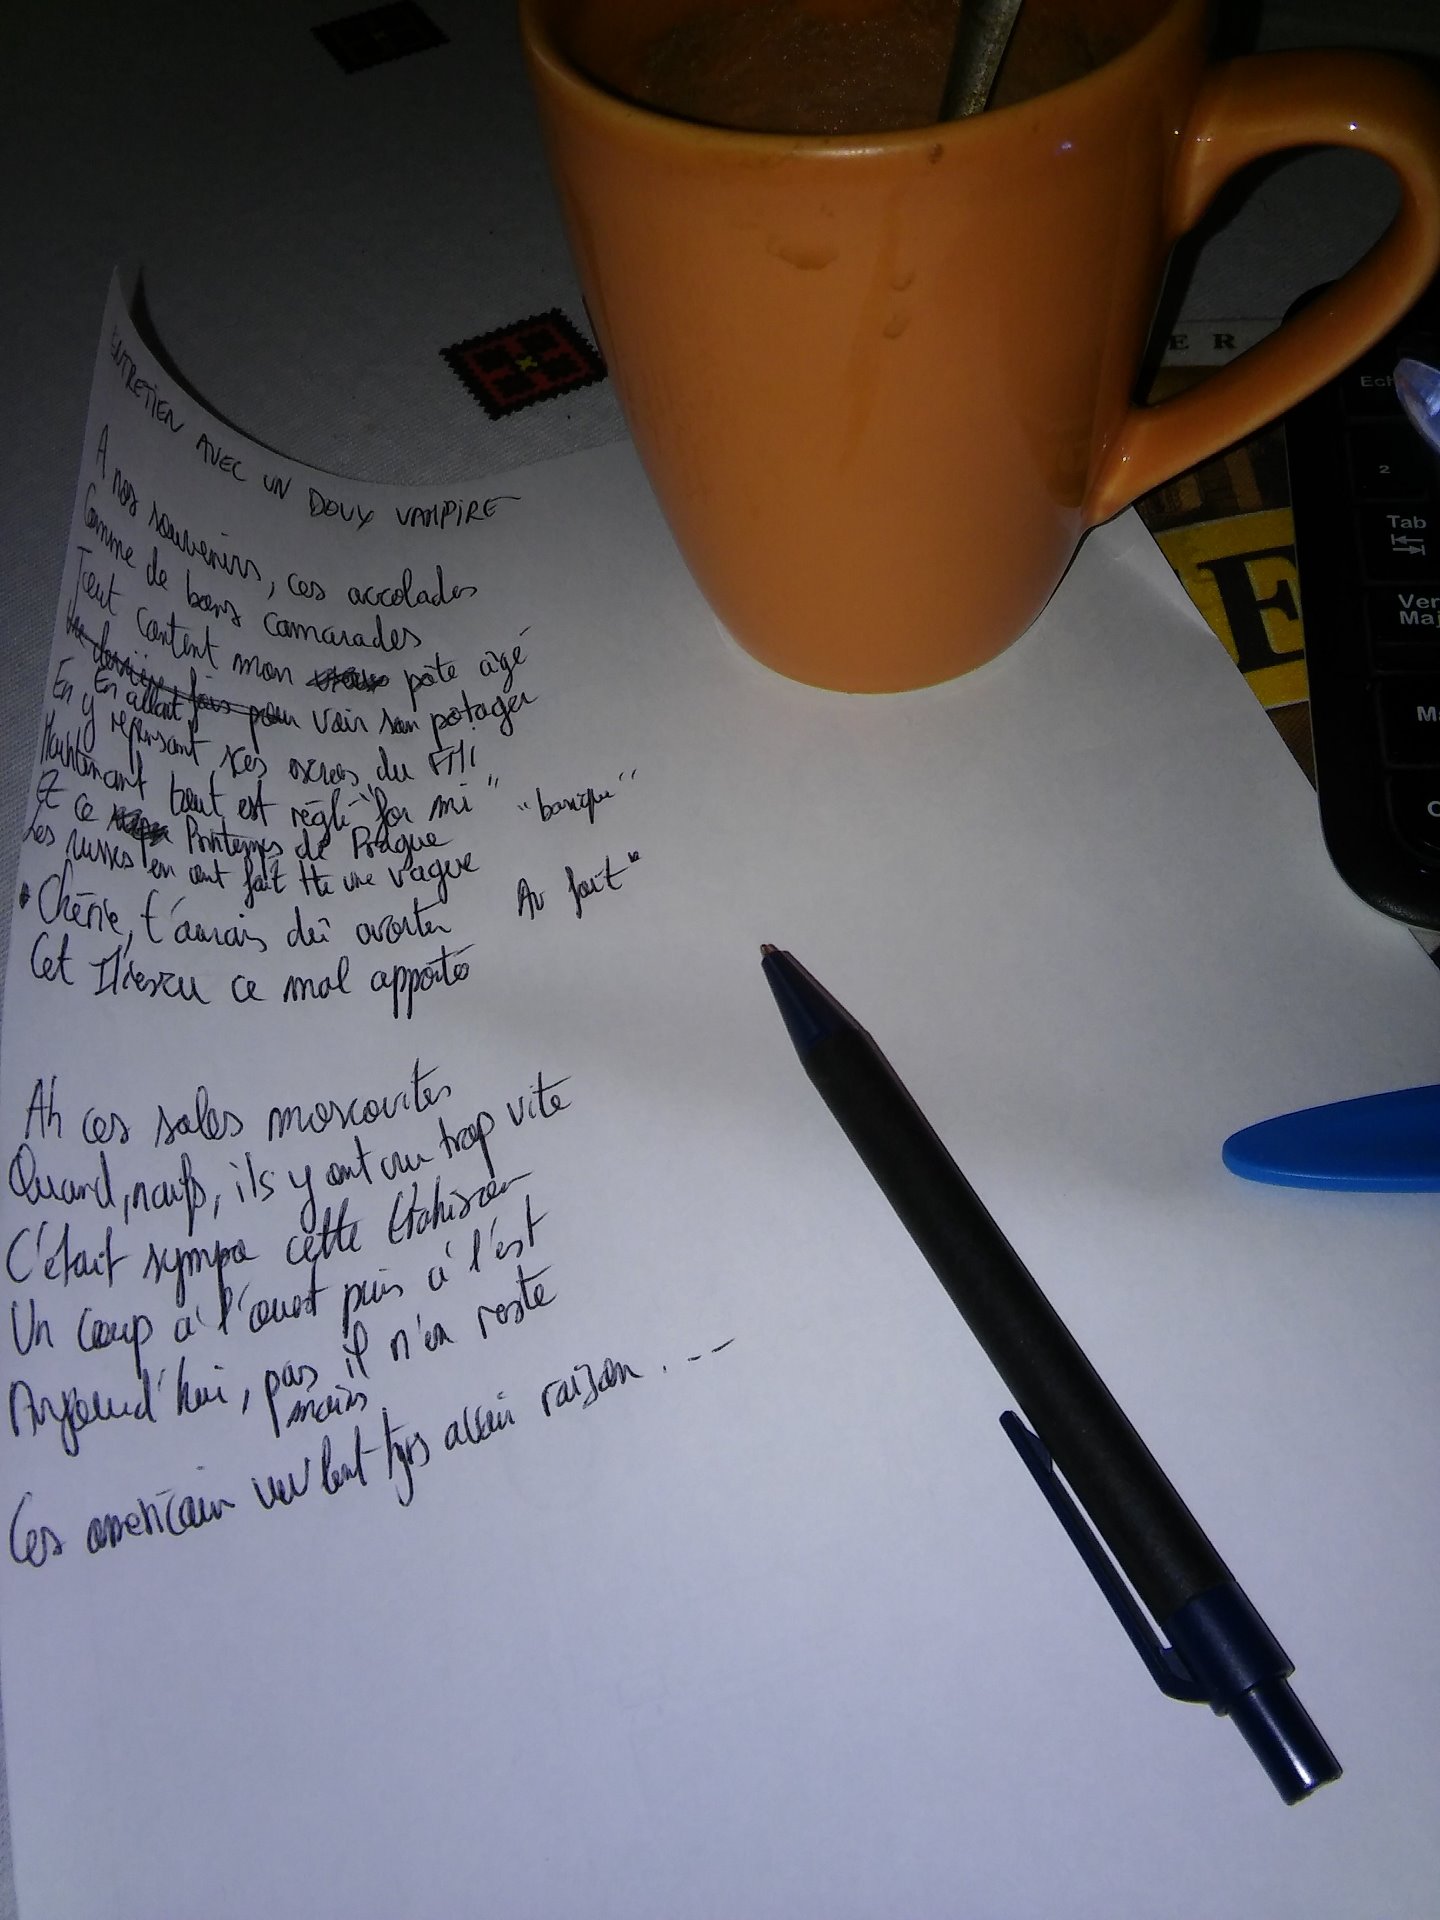 ENTRETIEN AVEC UN DOUX VAMPIRE
A nos souvenirs, ces accolades
Comme de bons camarades
Tout content mon pote agé
En allant pour voir son potager
En y repensant ses du FMI
Maintenant tout est réglé "for mi" "basique"
Et ce Printemps de Prague
Les russes en ont fait tte une vague
Chérie, t'aurais dû avorter Au fait"
Cet Iliescu ce mal apporté
Ah ces sales moscovites
Quand, naïfs, ils y ont cru trop vite
C'était sympa cette
Un coup à l'ouest puis à l'est
Aujourd'hui, pas il n'en reste
moins
Ces americain veulent tjrs avoir raison . - -
E R
E
Ech
2
Tab
Ver
Maj